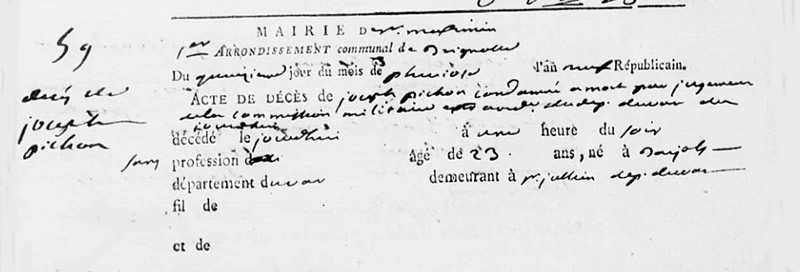 59
décès de
joseph
pichon
MAIRIE De st. maximin
1er ARRONDISSEMENT communal de Brignolle
Du quinzieme jour du mois de pluviose l'an neuf Républicain.
ACTE DE DÉCÈS de joseph pichon condamné a mort par jugement
de la commission militaire du dep. du var du
décédé le jourdhui à une heure du soir
sans profession de âgé de 23 ans, né à Barjols
département du var demeurant à st. jullien dep. du var
fil de
et de